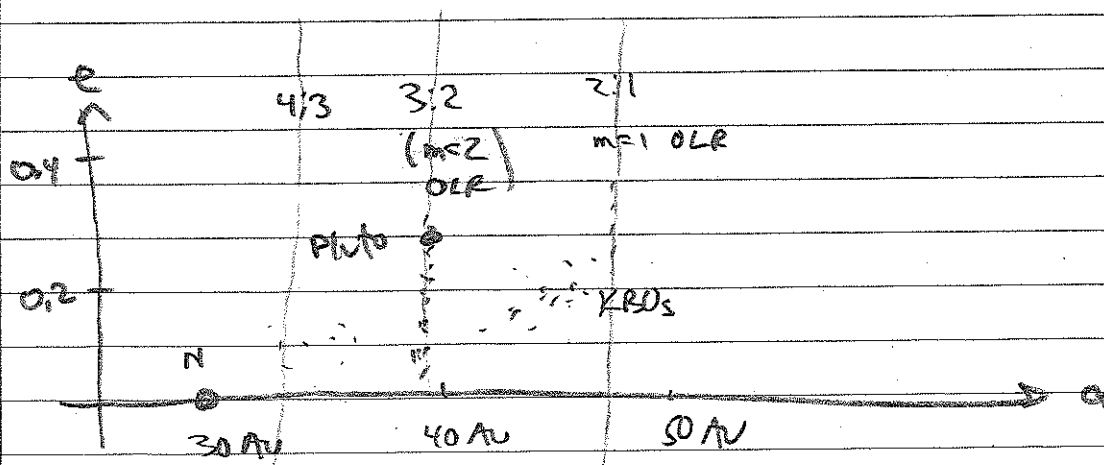 e
4:3 3:2 2:1
(m=2 m=1 OLR
0.4
OLR)
Pluto
0.2
KBOs
N
a
30 AU 40 AU 50 AU